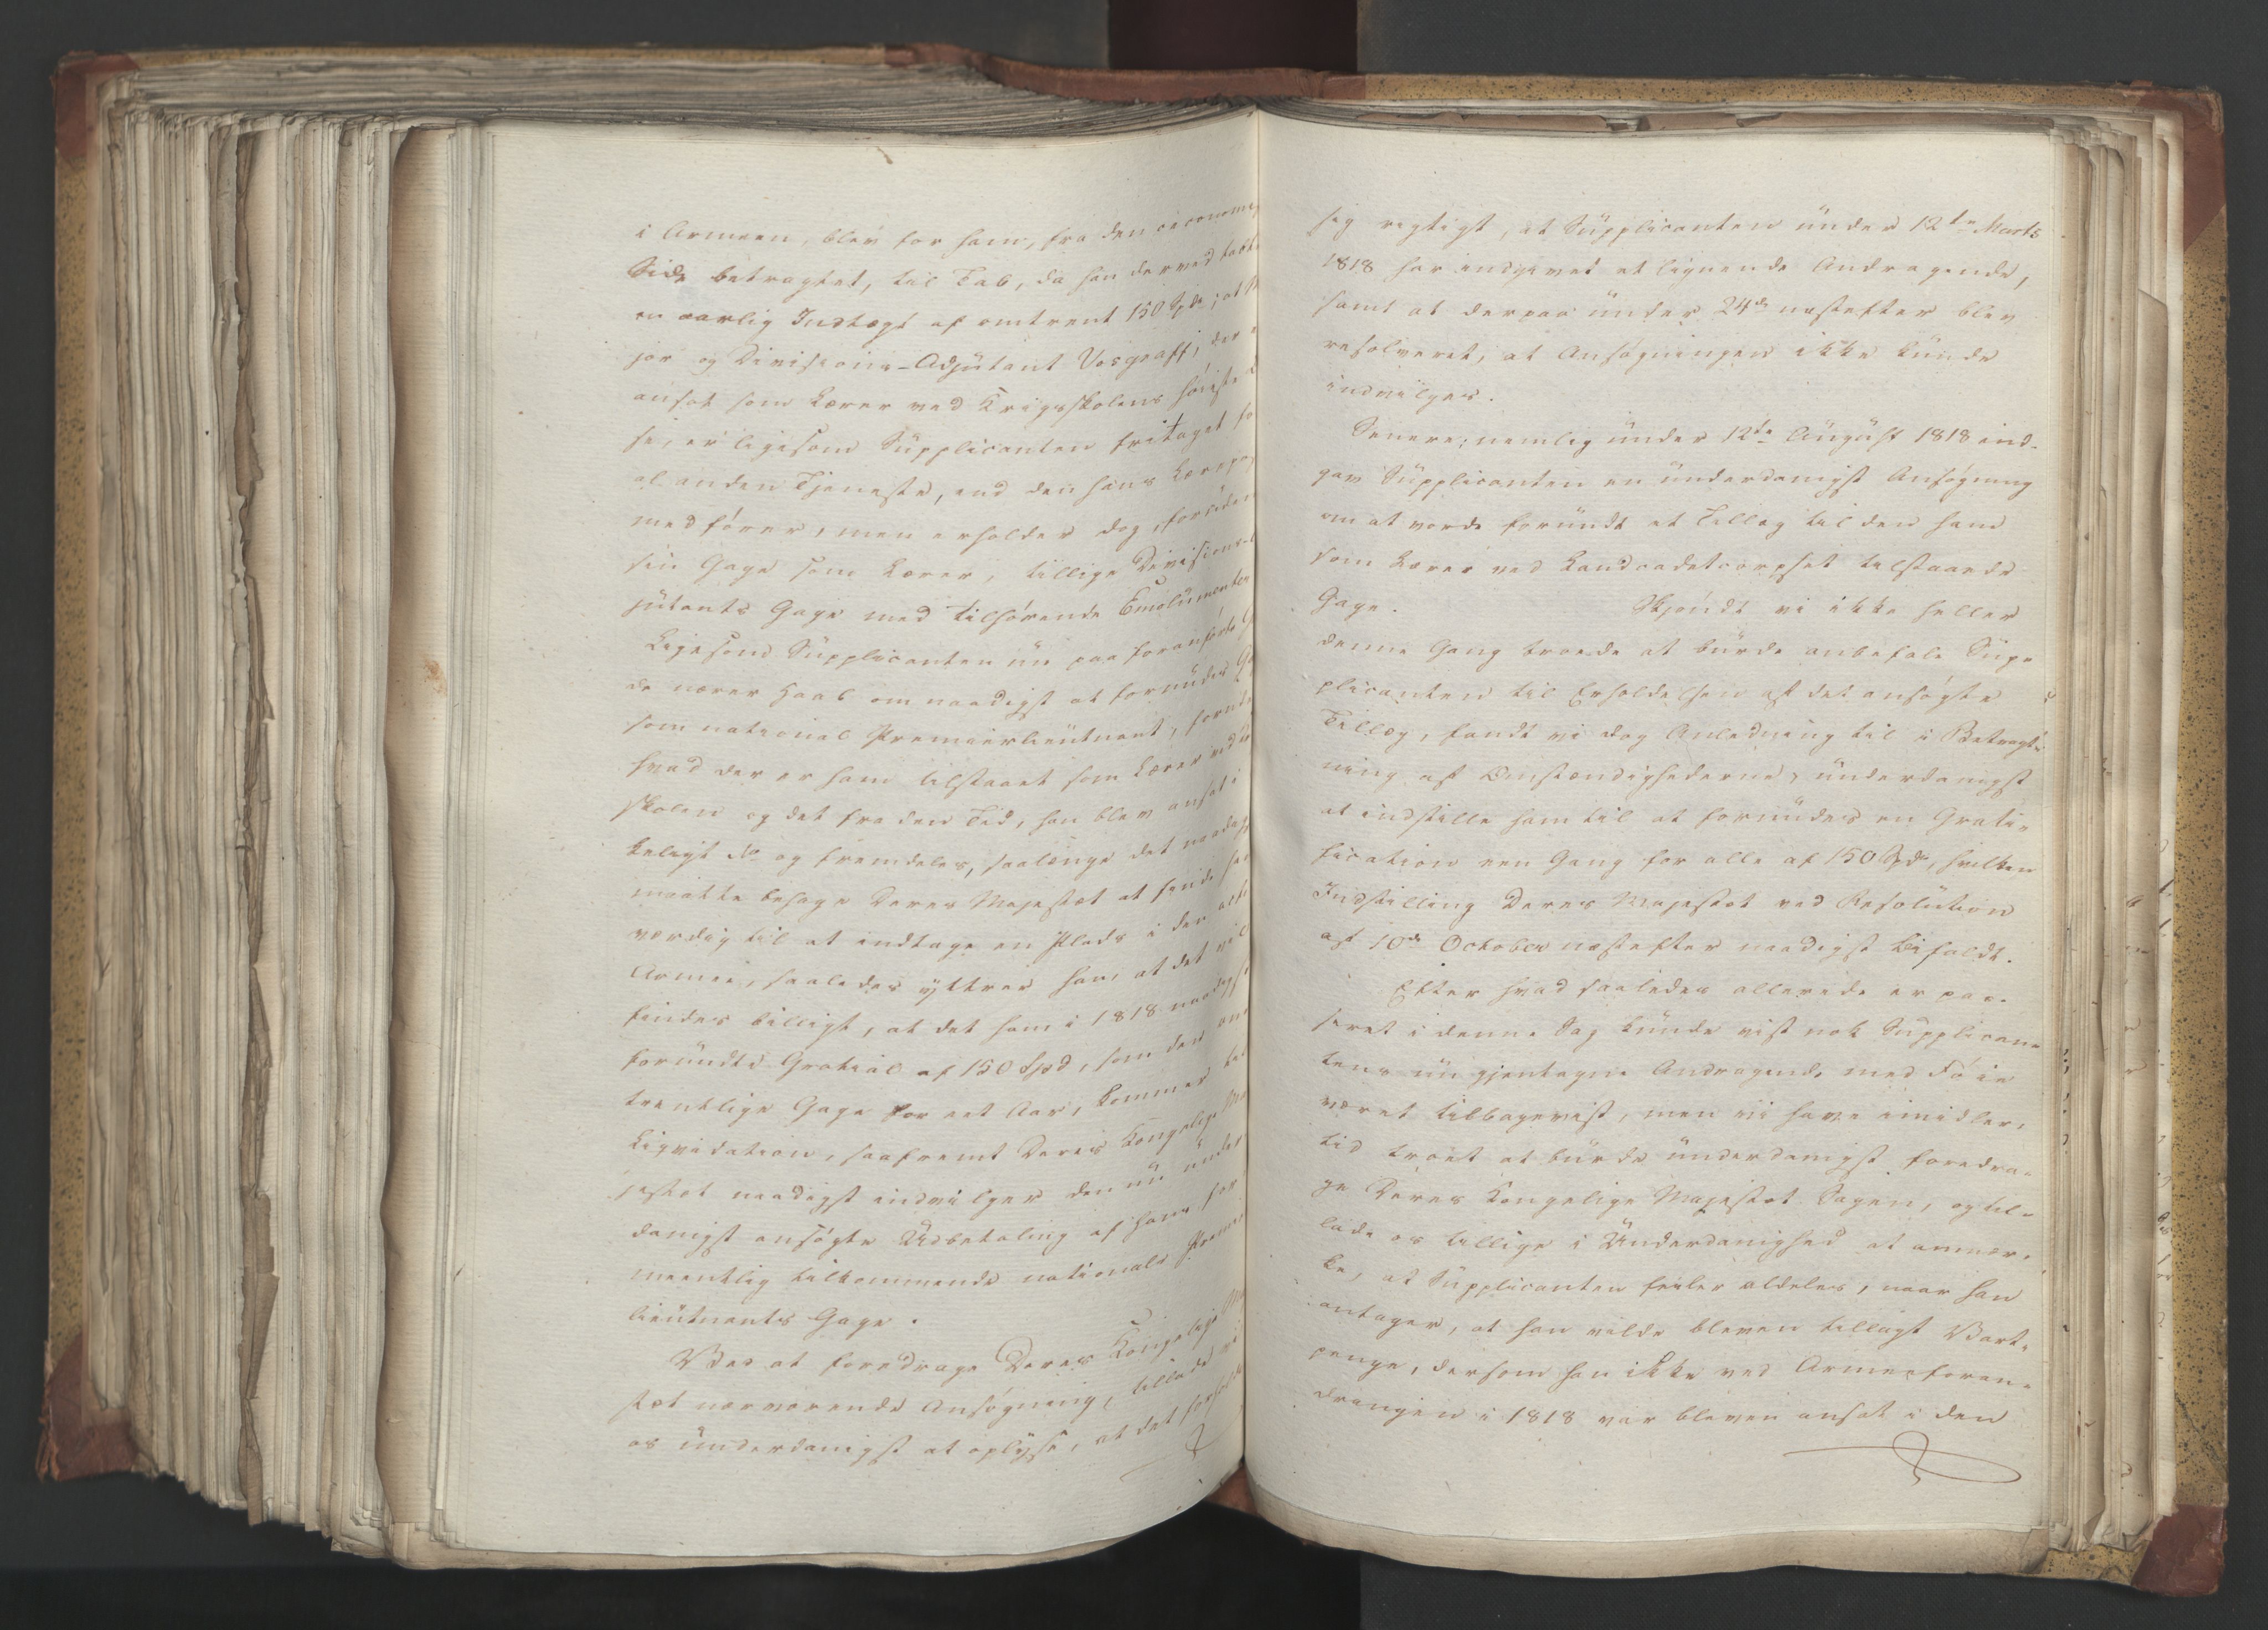 i Armeen, blev for ham, fra den oeconom
Side betragtet, til Tab, da han derved tabte
en aarlig Indtægt af omtrent 150 Spd; at
jor og Divisions-Adjutant Vosgraff, der
ansat som Lærer ved Krigsskolens høiste
se, er ligesom Supplicanten fritaget fo
al anden Tjeneste, end den hans Lærepo
medfører, men erholder dog, foruden
sin Gage som Lærer, tillige Divisions
jutants Gage med tilhørende Emolumenter
Ligesom Supplicanten nu paa foranførte
de nærer Haab om naadigst at forundes Ga
som national Premierlieutnant, forude
hvad der er ham tilstaaet som Lærer ved
skolen og det fra den Tid, han blev ansat i
og fremdeles, saalænge det naadigst
maatte behage Deres Majestæt at finde ha
værdig til at indtage en Plads i den
Armee, saaledes yttrer han, at det vil
findes billigt, at det ham i 1818 naadigst
forundte Gratial af 150 Spd, som den
trentlige Gage for eet Aar, kommer til
Liqvidation, saafremt Deres Kongelige Ma
jestæt naadigst indvilger den nu under
danigst ansøgte Udbetaling af hans for
meentlig tilkommende nationale Premier
lieutnants Gage.
Ved at foredrage Deres Kongelige Ma
stæt nærværende Ansøgning, tillade vi
os underdanigst at oplyse, at det forhold
sig rigtigt, at Supplicanten under 12te Marts
1818 har indgivet et lignende Andragende,
samt at derpaa under 24de næstefter blev
resolveret, at Ansøgningen ikke kunde
indvilges.
Senere, nemlig under 12te August 1818 ind-
gav Supplicanten en underdanigst Ansøgning
om at vorde forundt et Tillæg til den ham
som Lærer ved Landcadetcorpset tilstaaede
Gage. Skjøndt vi ikke heller
denne Gang troede at burde anbefale Sup-
plicanten til Erholdelsen af det ansøgte
Tillæg, fandt vi dog Anledning til i Betragt-
ning af Omstændighederne, underdanigst
at indstille ham til at forundes en Grati-
fication een Gang for alle af 150 Spd, hvilken
Indstilling Deres Majestæt ved Resolution
af 10de October næstefter naadigst bifaldt.
Efter hvad saaledes allerede er pas-
seret i denne Sag kunde vist nok Supplican-
tens nu gjentagne Andragende med Føie
været tilbageviist, men vi have imidler-
tid troet at burde underdanigst foredra-
ge Deres Kongelige Majestæt Sagen, og til-
lade os tillige i Underdanighed at anmær-
ke, at Supplicanten feiler aldeles, naar han
antager, at han vilde bleven tillagt Vart-
penge, dersom han ikke ved Armeeforan-
dringen i 1818 var bleven ansat i den